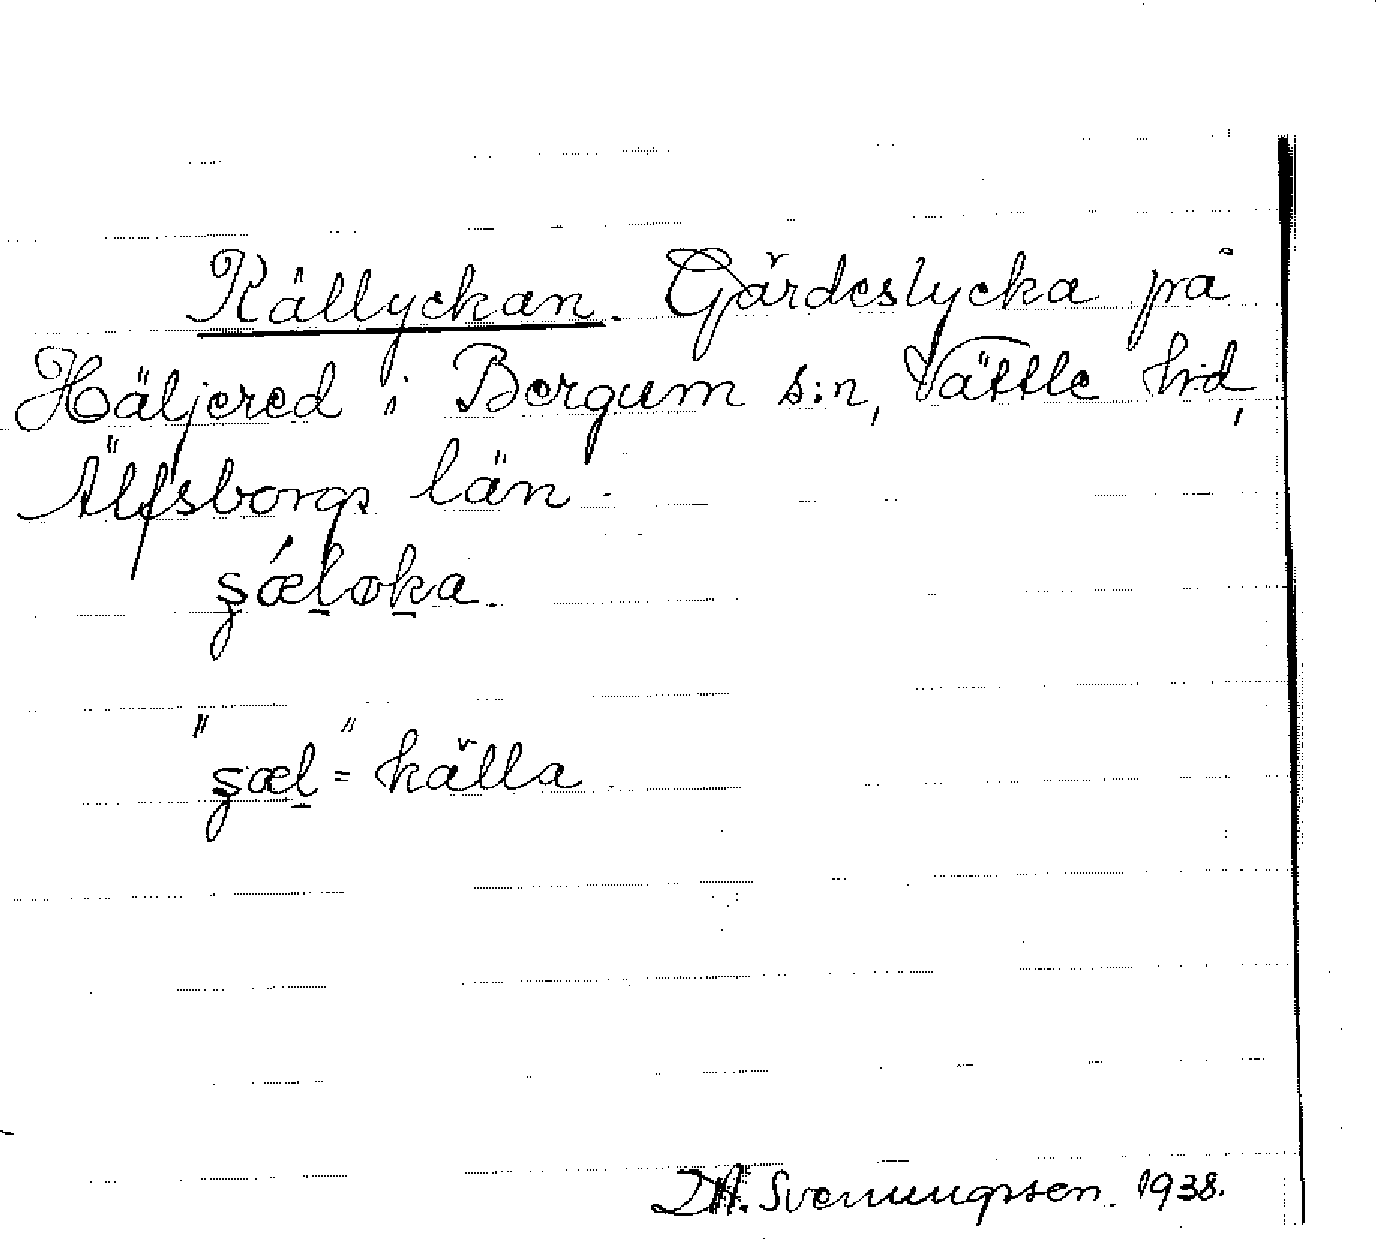 Källyckan. Gärdeslycka på
Häljered i Bergum s:n, Vättle hd,
Älfsborgs län.
ʂǽloka.
"ʂæl" = källa
Svenungsson. 1938.